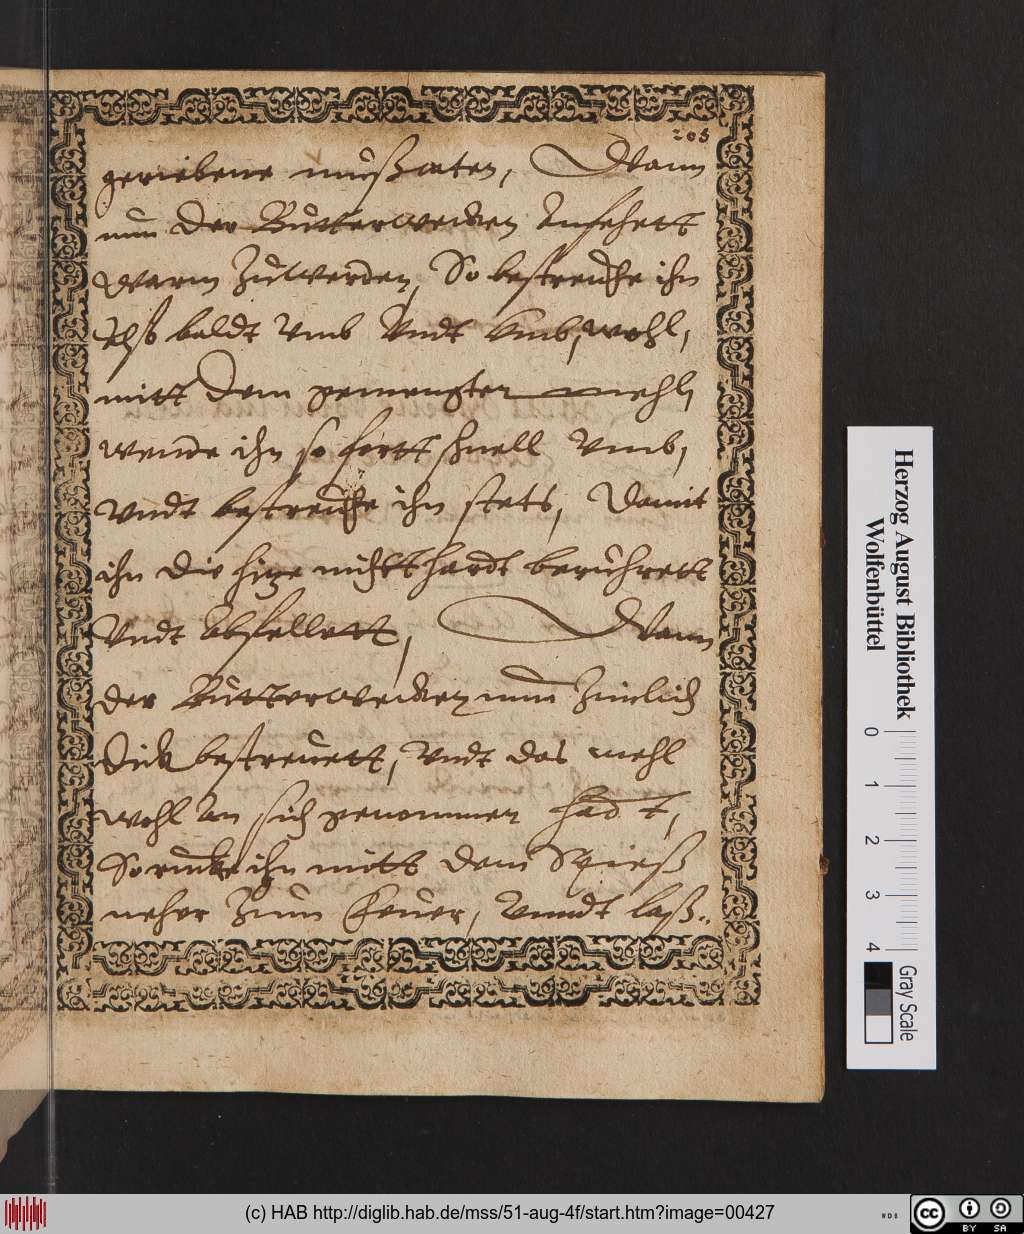 203
geriebene mußcaten, Wann
nun der Butterwecken Anfehett
warm zuwerden, So bestreuche ihn
Alß baldt vmb vndt vmb, wohl,
mitt dem gemengten mehl,
wende ihn so fortt schnell vmb,
vndt bestreuche ihn stets, Damit
ihn die hitze nichtt hardt beruhrett
vndt abfellett, Wann
der Butterwecken nun Zimlich
Dick bestreuett, vndt das mehl
wohl An sich genommen hadt,
So rucke ihn mitt dem Spieß
neher Zum Feuer, vnndt laß..
Herzog August Bibliothek
Wolfenbüttel
0 1 2 3 4
Gray Scale
(c) HAB http://diglib.hab.de/mss/51-aug-4f/start.htm?image=00427
WDB
cc BY SA